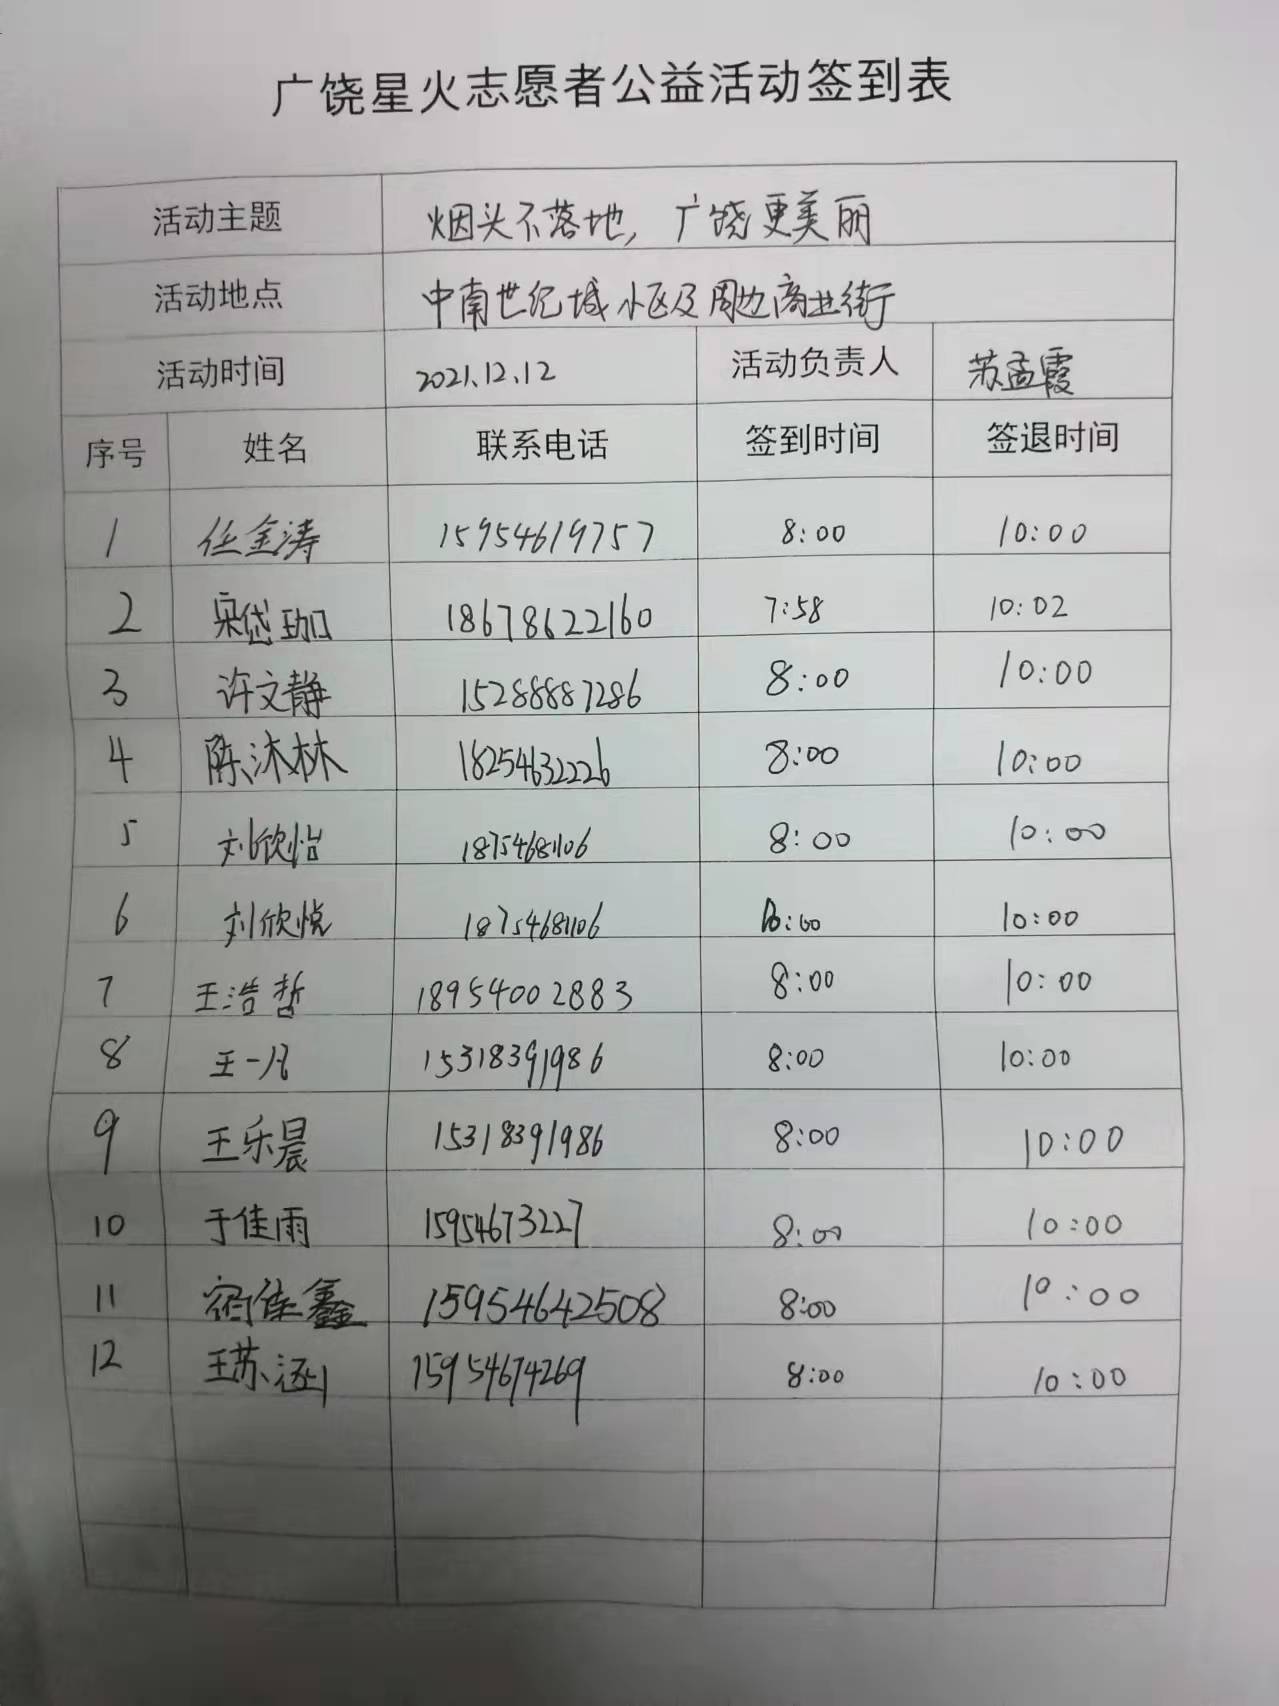 广饶星火志愿者公益活动签到表
活动主题 烟头不落地，广饶更美丽
活动地点 中南世纪城小区及周边商业街
活动时间 2021.12.12 活动负责人 苏孟霞
序号 姓名 联系电话 签到时间 签退时间
1 任金涛 15954619757 8:00 10:00
2 宋岱珈 18678622160 7:58 10:02
3 许文静 15288887286 8:00 10:00
4 陈沐林 18254632226 8:00 10:00
5 刘欣怡 18754681106 8:00 10:00
6 刘欣悦 18754681106 :00 10:00
7 王浩哲 18954002883 8:00 10:00
8 王一凡 15318391986 8:00 10:00
9 王乐晨 15318391986 8:00 10:00
10 于佳雨 15954673227 8:00 10:00
11 宿佳鑫 15954642508 8:00 10:00
12 王苏涵 15954674269 8:00 10:00